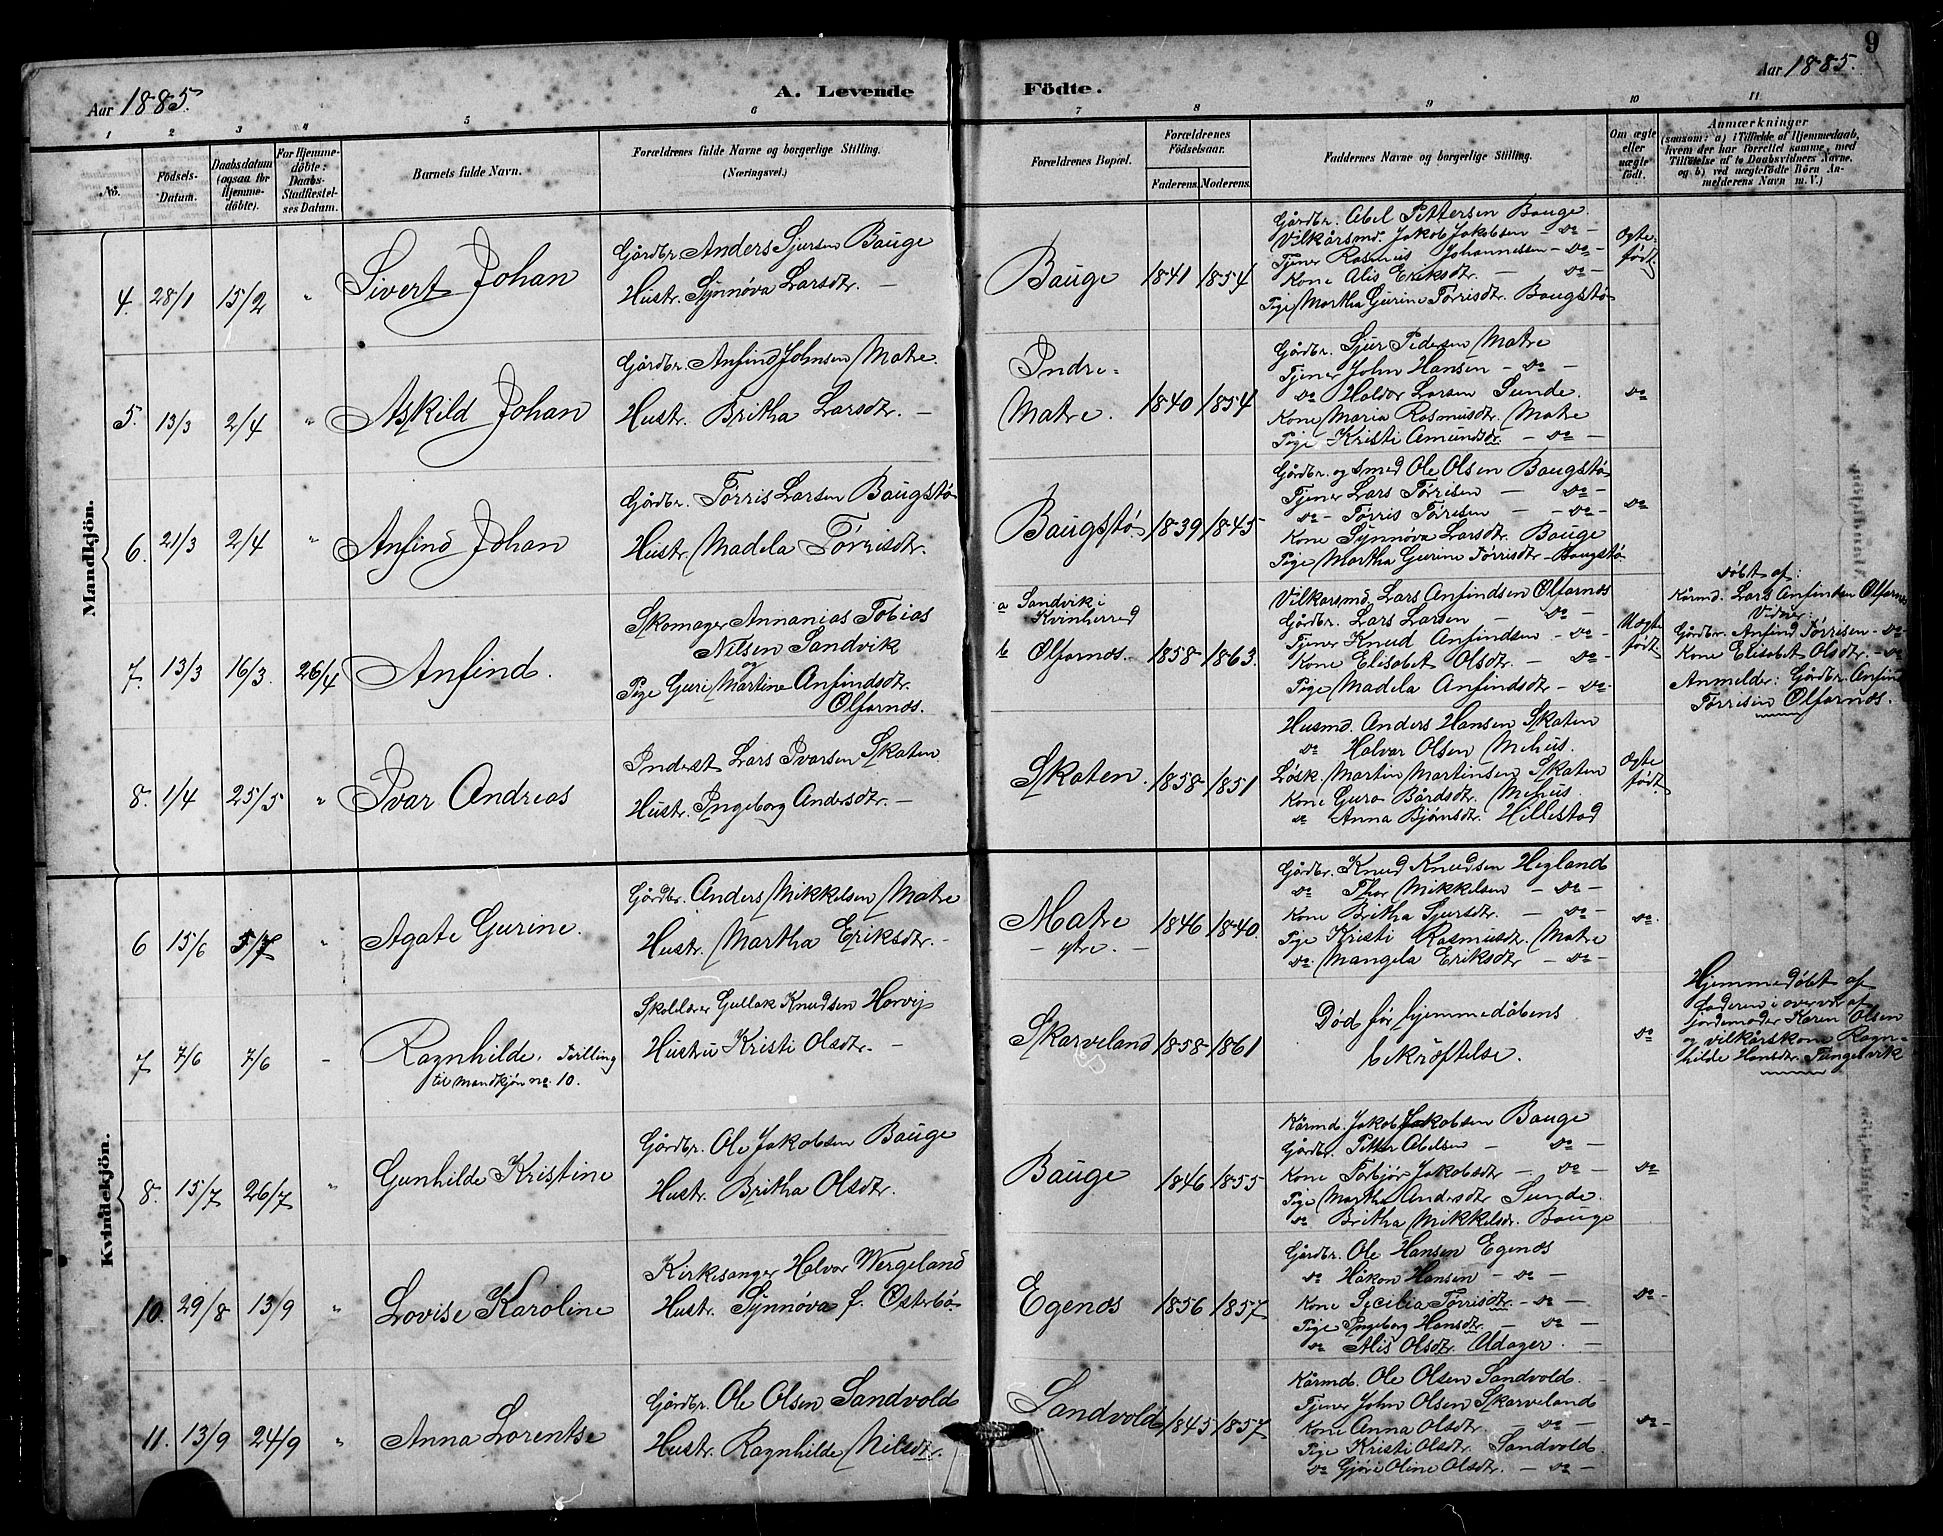 9
Aar 1885.
A. Levende Födte.
Aar 1885.
1 2 3 4 5 6 7 8 9 10 11
No.
Födsels-Datum.
Daabsdatum (ogsaa for Hjemmedöbte).
For Hjemmedöbte: Daabs-Stadfæstelses Datum.
Barnets fulde Navn.
Forældrenes fulde Navne og borgerlige Stilling.
(Næringsvei.)
Forældrenes Bopæl.
Forældrenes Födselsaar.
Faderens. Moderens.
Faddernes Navne og borgerlige Stilling.
Om ægte eller uægte födt.
Anmærkninger
(saasom: a) i Tilfælde af Hjemmedaab,
hvem der har forrettet samme, med
Tilföielse af to Daabsvidners Navne,
og b) ved uægtefödte Börn Anmelderens Navn m. V.)
Mandkjön.
4. 28/1 15/2 "
Sivert Johan
Gårdbr. Anders Sjursen Bauge
Hustr. Synnøva Larsdtr. —
Bauge 1841 1854
Gårdbr. Abel Pettersen Bauge.
Vilkårsmd. Jakob Jakobsen — do —
Tjener Rasmus Johannessen — do —
Kone Alis Eriksdtr. — do —
Pige Martha Gurine Tørrisdtr. Baugstø
Ægtefødt
5. 13/3 2/4 "
Askild Johan
Gårdbr. Anfind Johnsen Matre.
Hustr. Britha Larsdtr. —
Indre-
Matre. 1840 1854
Gårdbr. Sjur Pedersen Matre
Tjener John Hansen — do —
do Haldor Larsen Sunde.
Kone Maria Rasmusdtr. Matre
Pige Kristi Amundsdtr. — do —
do
6. 21/3 2/4 "
Anfind Johan
Gårdbr. Tørris Larsen Baugstø
Hustr. Madela Tørrisdtr.
Baugstø 1839 1845
Gårdbr. og smed Ole Olsen Baugstø
Tjener Lars Tørrisen — do —
do — Tørris Tørrisen — do —
Kone Synnøva Larsdtr. Bauge
Pige Martha Gurine Tørrisdtr. Baugstø
do
7. 13/3 16/3. 26/4
Anfind.
Skomager Annanias Tobias
Nilsen Sandvik
og
Pige Guri Martine Anfindsdtr.
Ølfarnes.
a Sandvik i
Kvinherred
b Ølfarnes. 1858 1863.
Vilkårsmd. Lars Anfindsen Ølfarnes
Gårdbr. Lars Larsen — do —
Tjener Knud Anfindsen — do —
Kone Elisabet Olsdtr. — do —
Pige Madela Anfindsdtr — do —
Uægte
født
Døbt af:
Kårmd. Lars Anfindsen Ølfarnes
Vidner:
Gårdbr. Anfind Tørrisen — do —
Kone Elisabet Olsdtr. — do
Anmelder: Gårdbr. Anfind
Tørrisen Ølfarnes.
8. 1/4 25/5 "
Ivar Andreas
Inderst Lars Ivarsen Skaten
Hustr. Ingeborg Andersdtr. —
Skaten. 1858 1851
Husmd. Anders Hansen Skaten
do Halvor Olsen Mehus.
Løsk. Martin Martinsen Skaten
Kone Guro Bårdsdtr. Mehus.
do Anna Bjørnsdtr. Hillestad
Ægte
født
Kvindekjön.
6 15/6 5/7 "
Agate Gurine.
Gårdbr. Anders Mikkelsen Matre
Hustr. Martha Eriksdtr. —
Matre
— ytre. — 1846 1840.
Gårdbr. Knud Knudsen Hegland
do Thor Mikkelsen — do —
Kone Britha Sjursdtr. — do —
Pige Kristi Rasmusdtr. Matre
do. Mangela Eriksdtr — do —
do.
7 7/6 7/6 —
Ragnhilde. Tvilling
til mandkjøn no. 10.
Skolelærer Gullak Knudsen
Hustru Kristi Olsdtr. —
Skarveland 1858 1861
Død før hjemmedåbens
bekræftelse.
do
Hjemmedøbt af
faderen i overvær af
jordemoder Karen Olsen
og vilkårskone Ragn-
hilde Hansdtr. Tungesvik
8. 15/7 26/7 "
Gunhilde Kristine
Gårdbr. Ole Jakobsen Bauge
Hustr. Britha Olsdtr.
Bauge 1846 1855
Kårmd. Jakob Jakobsen Bauge
Gårdbr. Petter Abelsen — do —
Kone Torbjør Jakobsdtr — do —
Pige Martha Andersdtr Sunde.
do Britha Mikkelsdtr. Bauge
do
10. 29/8 13/9 "
Lovise Karoline
Kirkesanger Halvor Wergeland
Hustr. Synnøva f. Østerbø
Egenes 1856 1857
Gårdbr. Ole Hansen Egenes
do Håkon Hansen — do —
Kone Secilia Tørrisdtr. — do —
Pige Ingeborg Hansdtr. — do —
do Alis Olsdtr. —
do —
11. 13/9 24/9 "
Anna Lorentse
Gårdbr. Ole Olsen Sandvold
Hustr. Ragnhilde Nilsdtr.
Sandvold 1845 1857
Kårmd. Ole Olsen Sandvold. —
Tjener John Olsen Skarveland
Kone Anna Olsdtr — do —
Pige Kristi Olsdtr. Sandvold.
do Gjøri Oline Olsdtr. — do —
do —